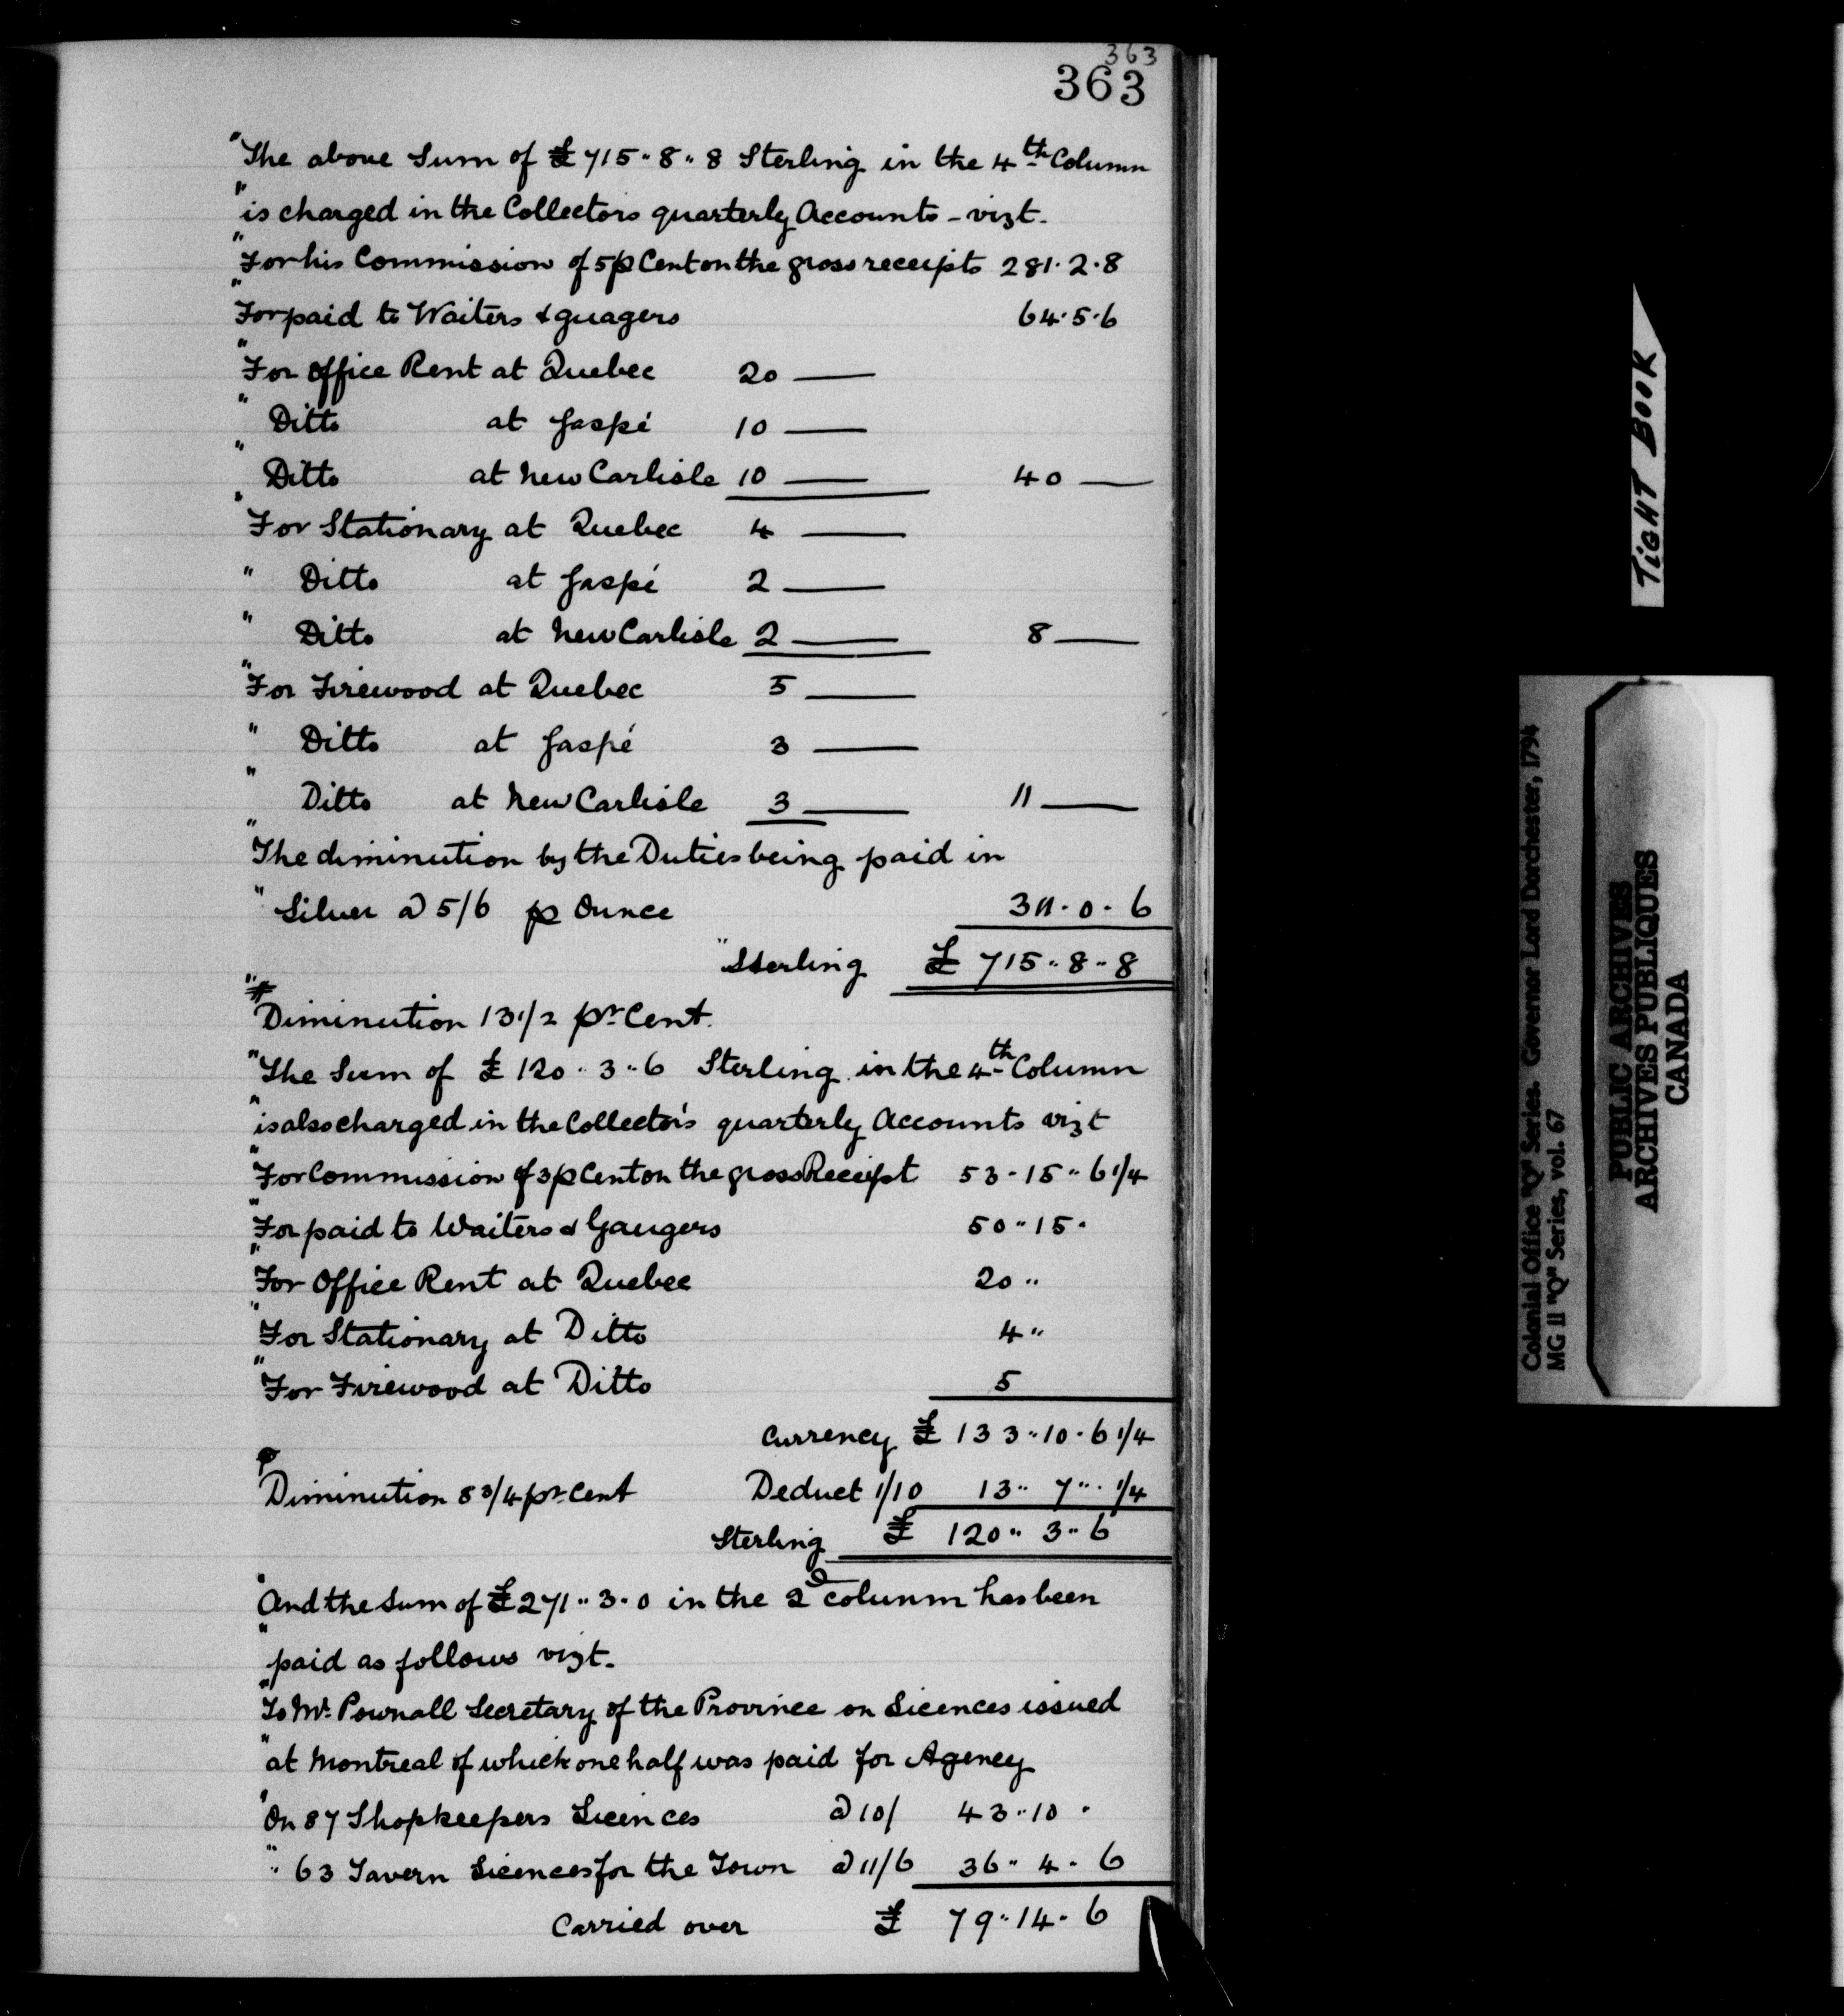 363
363
"The above Sum of £715"8"8 Sterling in the 4th Column
"is charged in the Collectors quarterly Accounts - vizt.
"For his Commission of 5 p Cent on the gross receipts 281.2.8
"For paid to Waiters & guagers 64.5.6
"For Office Rent at Quebec 20 —
" Ditto at Gaspé 10 —
" Ditto at New Carlisle 10 — 40 —
"For Stationary at Quebec 4 —
" Ditto at Gaspé 2 —
" Ditto at New Carlisle 2 — 8 —
"For Firewood at Quebec 5 —
" Ditto at Gaspé 3 —
" Ditto at New Carlisle 3 — 11 —
"The diminution by the Duties being paid in
" Silver @ 5/6 p Ounce 311.0.6
"Sterling £ 715"8"8
"#
Diminution 13 1/2 pr Cent.
"The Sum of £120"3"6 Sterling in the 4th Column
"is also charged in the Collector's quarterly Accounts vizt
"For Commission of 3 p Cent on the gross Receipt 53-15"6 1/4
"For paid to Waiters & Gaugers 50"15.
"For Office Rent at Quebec 20"
"For Stationary at Ditto 4"
"For Firewood at Ditto 5
Currency £ 133"10.6 1/4
Diminution 8 3/4 pr Cent Deduct 1/10 13" 7" . 1/4
Sterling £ 120" 3"6
"And the Sum of £271"3.0 in the 2d column has been
"paid as follows vizt.
"To Mr. Pownall Secretary of the Province on Licences issued
"at Montreal of which one half was paid for Agency
"On 87 Shopkeepers Licences @ 10/ 43"10 .
" " 63 Tavern Licences for the Town @ 11/6 36" 4. 6
Carried over £ 79"14. 6
TIGHT BOOK
Colonial Office "Q" Series. Governor Lord Dorchester, 1794
MG 11 "Q" Series, vol. 67
PUBLIC ARCHIVES
ARCHIVES PUBLIQUES
CANADA